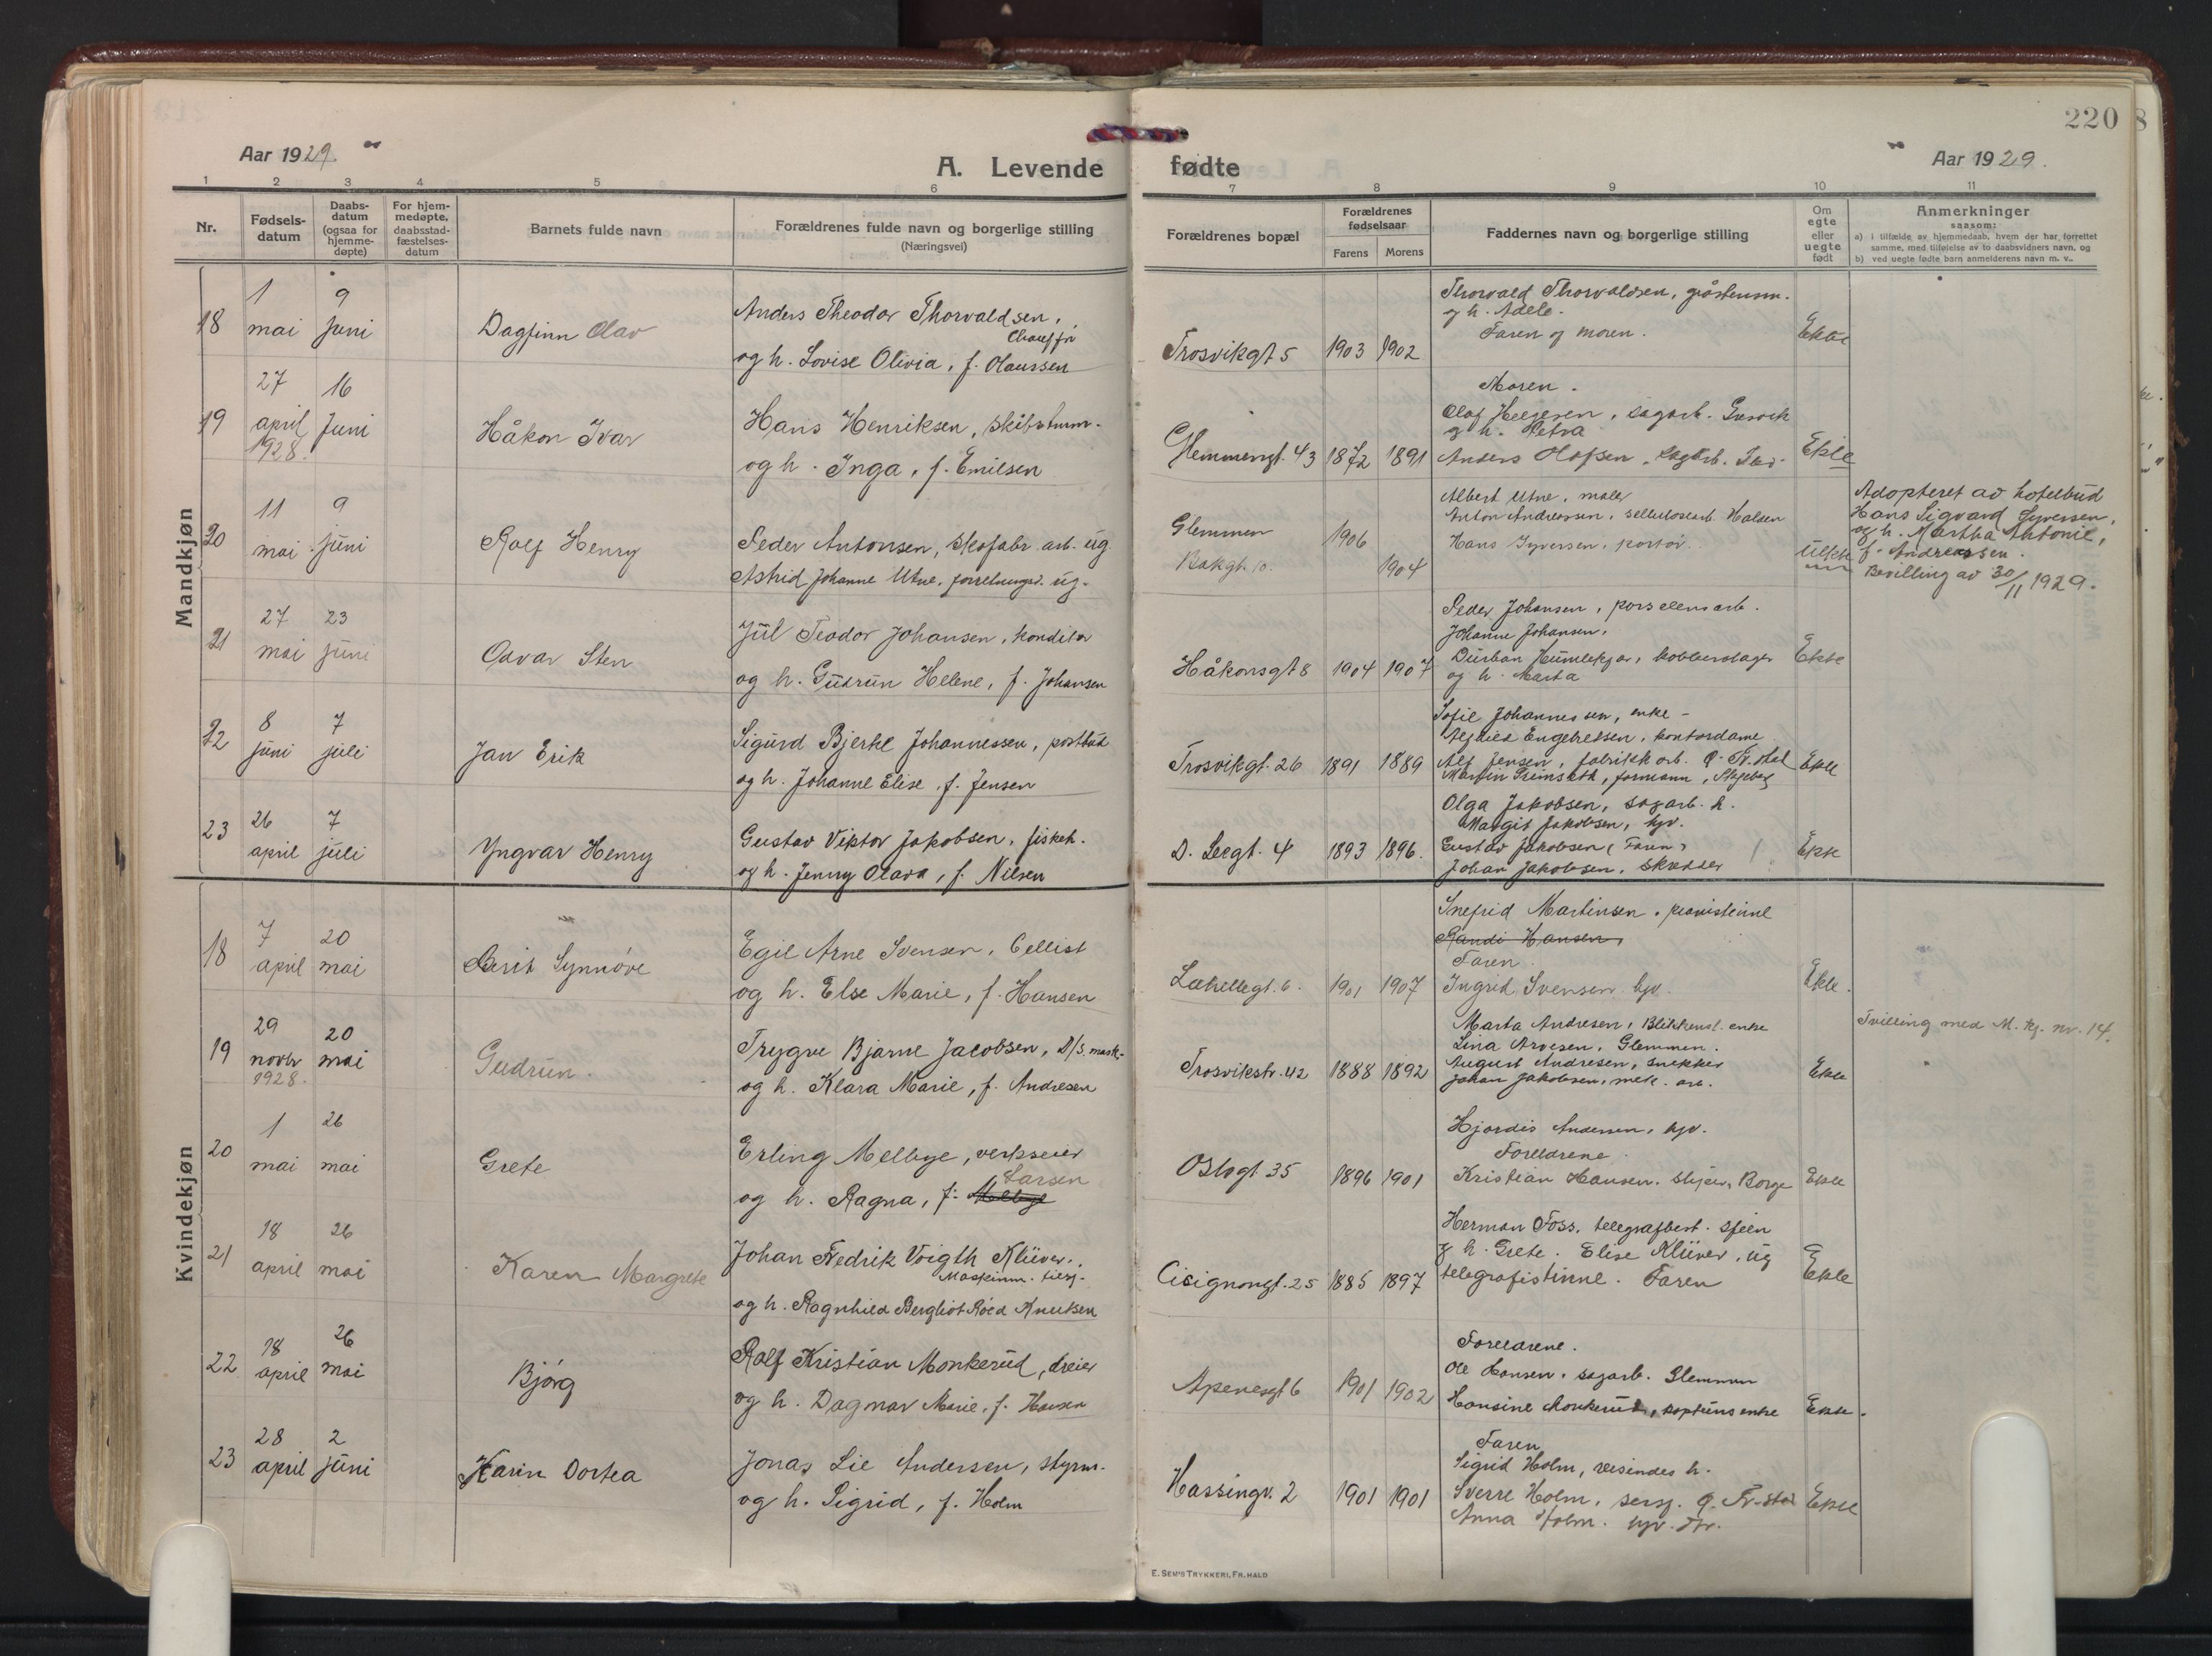 220
8
Aar 1929.
A. Levende fødte
Aar 1929.
1 2 3 4 5 6 7 8 9 10 11
Nr.
Fødsels-
datum
Daabs-
datum
(ogsaa for
hjemme-
døpte)
For hjem-
medøpte,
daabsstad-
fæstelses-
datum
Barnets fulde navn
Forældrenes fulde navn og borgerlige stilling
(Næringsvei)
Forældrenes bopæl
Forældrenes
fødselsaar
Farens Morens
Faddernes navn og borgerlige stilling
Om
egte
eller
uegte
født
Anmerkninger
saasom:
a) i tilfælde av hjemmedaab, hvem der har forrettet
samme, med tilføielse av to daabsvidners navn, og
b) ved uegte fødte barn anmelderens navn m. v..
Mandkjøn
18
1 9
mai juni
Dagfinn Olav
Anders Theodor Thorvaldsen,
Chauffør
og h. Lovise Olivia, f. Olaussen
Trosvikgt 5 1903 1902
Thorvald Thorvaldsen,
og h. Adele.
Faren og moren.
Ekte
19
27 16
april juni
1928.
Håkon Ivar
Hans Henriksen,
og h. Inga, f. Emilsen
Glemmengt. 43 1872 1891
Moren.
Olaf sagarb.
og h. Petra
Anders Olafsen, sagarb.
Ekte
20
11 9
mai juni
Rolf Henry
Peder Antonsen, skofabr. arb. ug
Astrid Johanne Utne, ug.
Glemmen 1906
Bakgt. 10. 1904
Albert Utne, maler
Anton Andreassen, sellulosearb. Halden
Hans Syversen, portør.
Uekte
Adopteret av hotelbud
Hans Sigvard Syversen,
og h. Martha Antonie,
f. Andreassen.
Bevilling av 30/11 1929.
21
27 23
mai juni
Odvar Sten
Jul Teodor Johansen, konditor
og h. Gudrun Helene, f. Johansen
Håkonsgt 8 1904 1907
Peder Johansen, porselensarb.
Johanne Johansen,
Durban Humlekjær, kobberslager
og h. Marta
Ekte
22
8 7
juni juli
Jan Erik
Sigurd Bjerke Johannessen, postbud
og h. Johanne Elise, f. Jensen
Trosvikgt. 26 1891 1889
Sofie Johannessen, enke
Engebretsen, kontordame
Alf Jensen, fabrikkarb.
Martin formann,
Ekte
23
26 7
april juli
Yngvar Henry
Gustav Viktor Jakobsen, fiskeh.
og h. Jenny Olava, f. Nilsen
D. Leegt. 4 1893 1896.
Olga Jakobsen, sagarb. h.
Margit Jakobsen, hjv.
Gustav Jakobsen (Faren)
Johan Jakobsen, skredder
Ekte
Kvindekjøn
18
7 20
april mai
Berit Synnøve
Egil Arne Svensen, Cellist
og h. Else Marie, f. Hansen
Lahellegt. 6. 1901 1907
Snefrid Martinsen, pianistinne
Randi Hansen,
Faren.
Ingrid Svensen hjv.
Ekte.
19
29 20
novbr mai
1928.
Gudrun.
Trygve Bjarne Jacobsen, D/S. mask.
og h. Klara Marie, f. Andresen
Trosvikstr. 42 1888 1892
Marta Andresen, Blikkensl. enke
Lina Arvesen, Glemmen.
August Andresen, snekker
Johan Jakobsen, mek. arb.
Ekte
Tvilling med M. kj. nr. 14.
20
1 26
mai mai
Grete
Erling Melbye, verkseier
Larsen
og h. Ragna, f. Melbye
Oslogt 35 1896 1901
Hjordis Andersen, hjv.
Foreldrene.
Kristian Hansen, Borge
Ekte
21
18 26
april mai
Karen Margrete
Johan Fredrik Voigth Klüver,
Maskinm.
og h. Ragnhild Bergliot Röed Knutsen
Cicignongt. 25 1885 1897
Herman Foss, telegrafbest. Skien
og h. Grete. Elise Klüver, ug
telegrafistinne. Faren
Ekte
22
18 26
april mai
Bjórg
Rolf Kristian Monkerud, dreier
og h. Dagmar Marie, f. Hansen
Apenesgt 6 1901 1902
Foreldrene.
Ole Hansen, sagarb. Glemmen
Hansine Monkerud, kapteins enke
Ekte.
23
28 2
april juni
Karin Dortea
Jonas Lie Andersen, styrm.
og h. Sigrid, f. Holm
Hassingv. 2 1901 1901
Faren
Sigrid Holm, h.
Sverre Holm, sersj.
Anna Holm. hjv. Fr.
Ekte
E. SEM'S TRYKKERI, FR.HALD